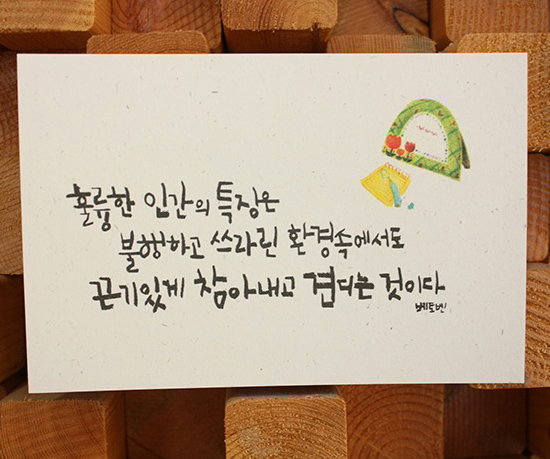 훌륭한 인간의 특징은
불행하고 쓰라린 환경속에서도
끈기있게 참아내고 견디는 것이다
베토벤